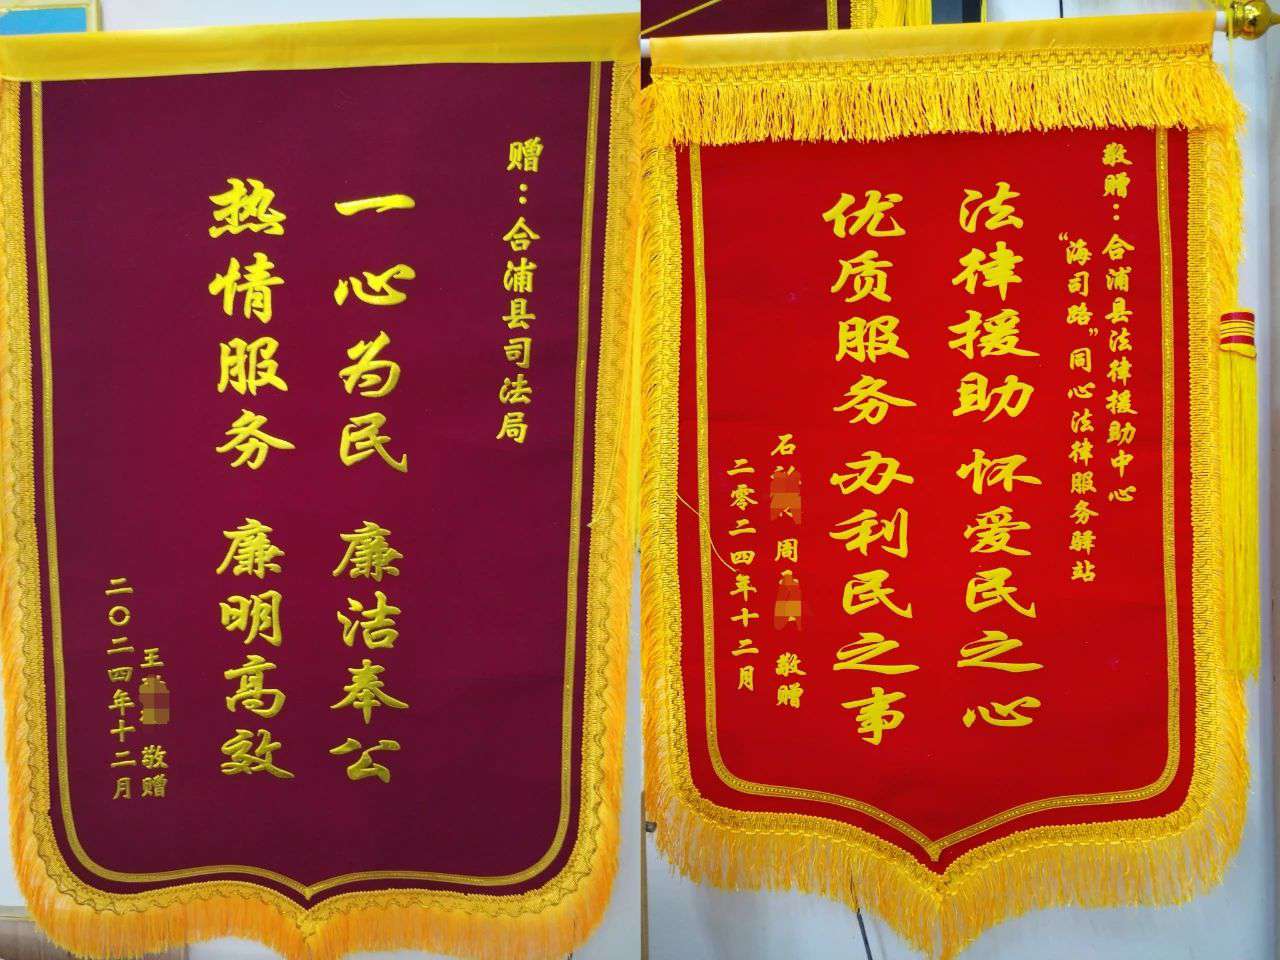 赠：合浦县司法局
一心为民 廉洁奉公
热情服务 廉明高效
王 敬赠
二〇二四年十二月
敬赠：合浦县法律援助中心
“海司路”同心法律服务驿站
法律援助 怀爱民之心
优质服务 办利民之事
石 周 敬赠
二零二四年十二月